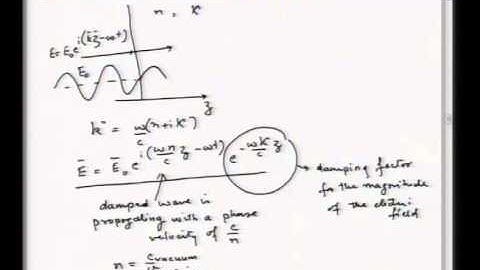 n, K
E = E₀ e^{i(k̄z-ωt)}
E₀
z
k̄ = ω/c (n+iK)
Ē = Ē₀ e^{i(ωn/c z - ωt)} e^{-ωK/c z}
damping factor
for the magnitude
of the
field
damped wave is
propogating with a phase
velocity of c/n
n = c vacuum